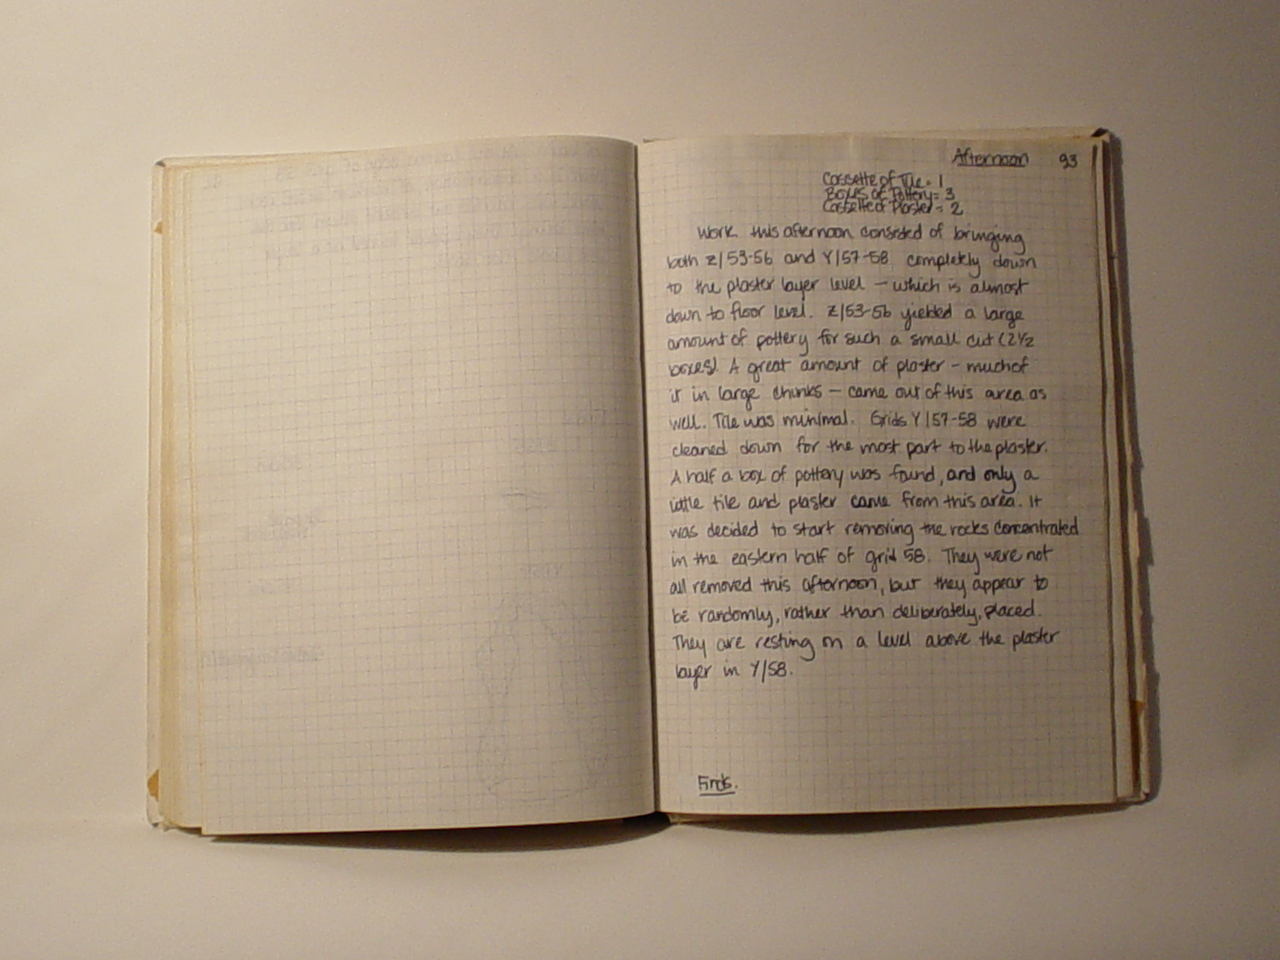 Afternoon 93
Cassette of Tile = 1
Boxes of Pottery = 3
Cassette of Plaster = 2
Work this afternoon consisted of bringing
both Z/53-56 and Y/57-58 completely down
to the plaster layer level - which is almost
down to floor level. Z/53-56 yielded a large
amount of pottery for such a small cut (2 1/2
boxes). A great amount of plaster - much of
it in large chunks - came out of this area as
well. Tile was minimal. Grids Y/57-58 were
cleaned down for the most part to the plaster.
A half a box of pottery was found, and only a
little tile and plaster came from this area. It
was decided to start removing the rocks concentrated
in the eastern half of grid 58. They were not
all removed this afternoon, but they appear to
be randomly, rather than deliberately, placed.
They are resting on a level above the plaster
layer in Y/58.
Finds.